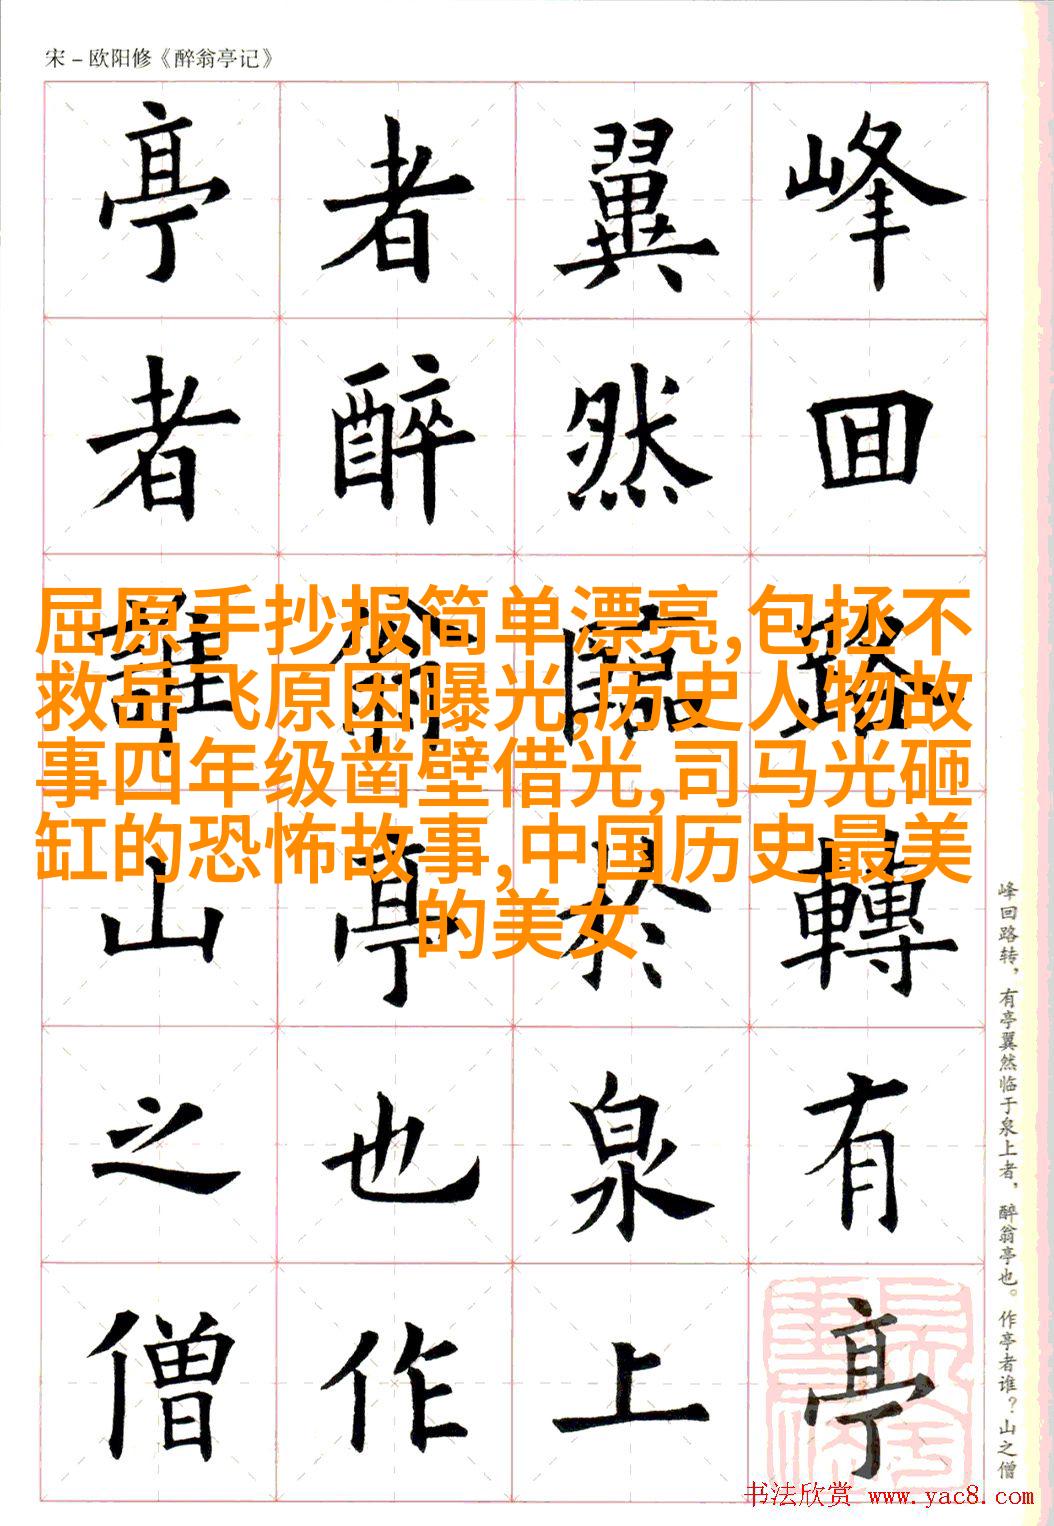 宋－欧阳修《醉翁亭记》
峰囬路轉有亭
翼然臨於泉上
者醉翁亭也作
亭者誰山之僧
屈原手抄报简单漂亮,包拯不
救岳飞原因曝光,历史人物故
事四年级凿壁借光,司马光砸
缸的恐怖故事,中国历史最美
的美女
峰回路转，有亭翼然临于泉上者，醉翁亭也。作亭者谁？山之僧
书法欣赏 www.yac8.com